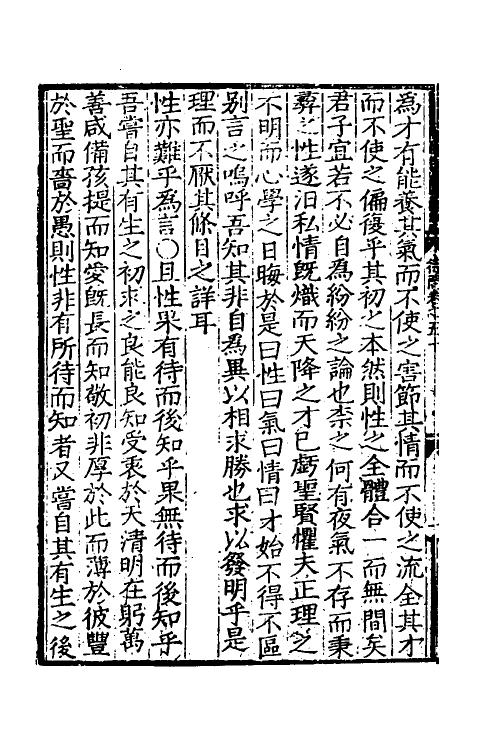 為才有能養其氣而不使之害節其情而不使之流全其才
而不使之偏復乎其初之本然則性之全體合一而無間矣
君子宜若不必自為紛紛之論也柰之何有夜氣不存而秉
彛之性遂汨私情既熾而天降之才已虧聖賢懼夫正理之
不明而心學之日晦於是曰性曰氣曰情曰才始不得不區
别言之嗚呼吾知其非自為異以相求勝也求以發明乎是
理而不厭其條目之詳耳
性亦難乎為言○且性果有待而後知乎果無待而後知乎
吾嘗自其有生之初求之良能良知受衷於天清明在躬萬
善咸備孩提而知愛既長而知敬初非厚於此而薄於彼豐
於聖而嗇於愚則性非有所待而知者又嘗自其有生之後